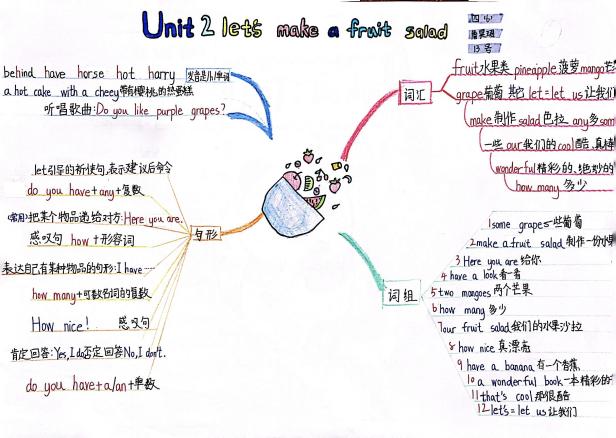 Unit 2 let's make a fruit salad
四(4)
13号
behind have horse hot harry 发音是/h/单词
a hot cake with a cheey 带有樱桃的热蛋糕
听唱歌曲:Do you like purple grapes?
词汇
fruit 水果类 pineapple 菠萝 mango 芒
grape 葡萄 其它 let=let us 让我们
make 制作 salad 色拉 any 多 som
一些 our 我们的 cool 酷,真棒
wonderful 精彩的、绝妙的
how many 多少
句形
let引导的祈使句,表示建议后命令
do you have+any+复数
常用:把某个物品递给对方:Here you are.
感叹句 how+形容词
表达自己有某种物品的句形:I have
how many+可数名词的复数
How nice! 感叹句
肯定回答:Yes, I do 否定回答 No, I don't.
do you have+a/an+单数
词组
1 some grapes 一些葡萄
2 make a fruit salad 制作一份水
3 Here you are 给你
4 have a look 看一看
5 two mangoes 两个芒果
6 how many 多少
7 our fruit salad 我们的水果沙拉
8 how nice 真漂亮
9 have a banana 有一个香蕉
10 a wonderful book 一本精彩的
11 that's cool 那很酷
12 let's=let us 让我们